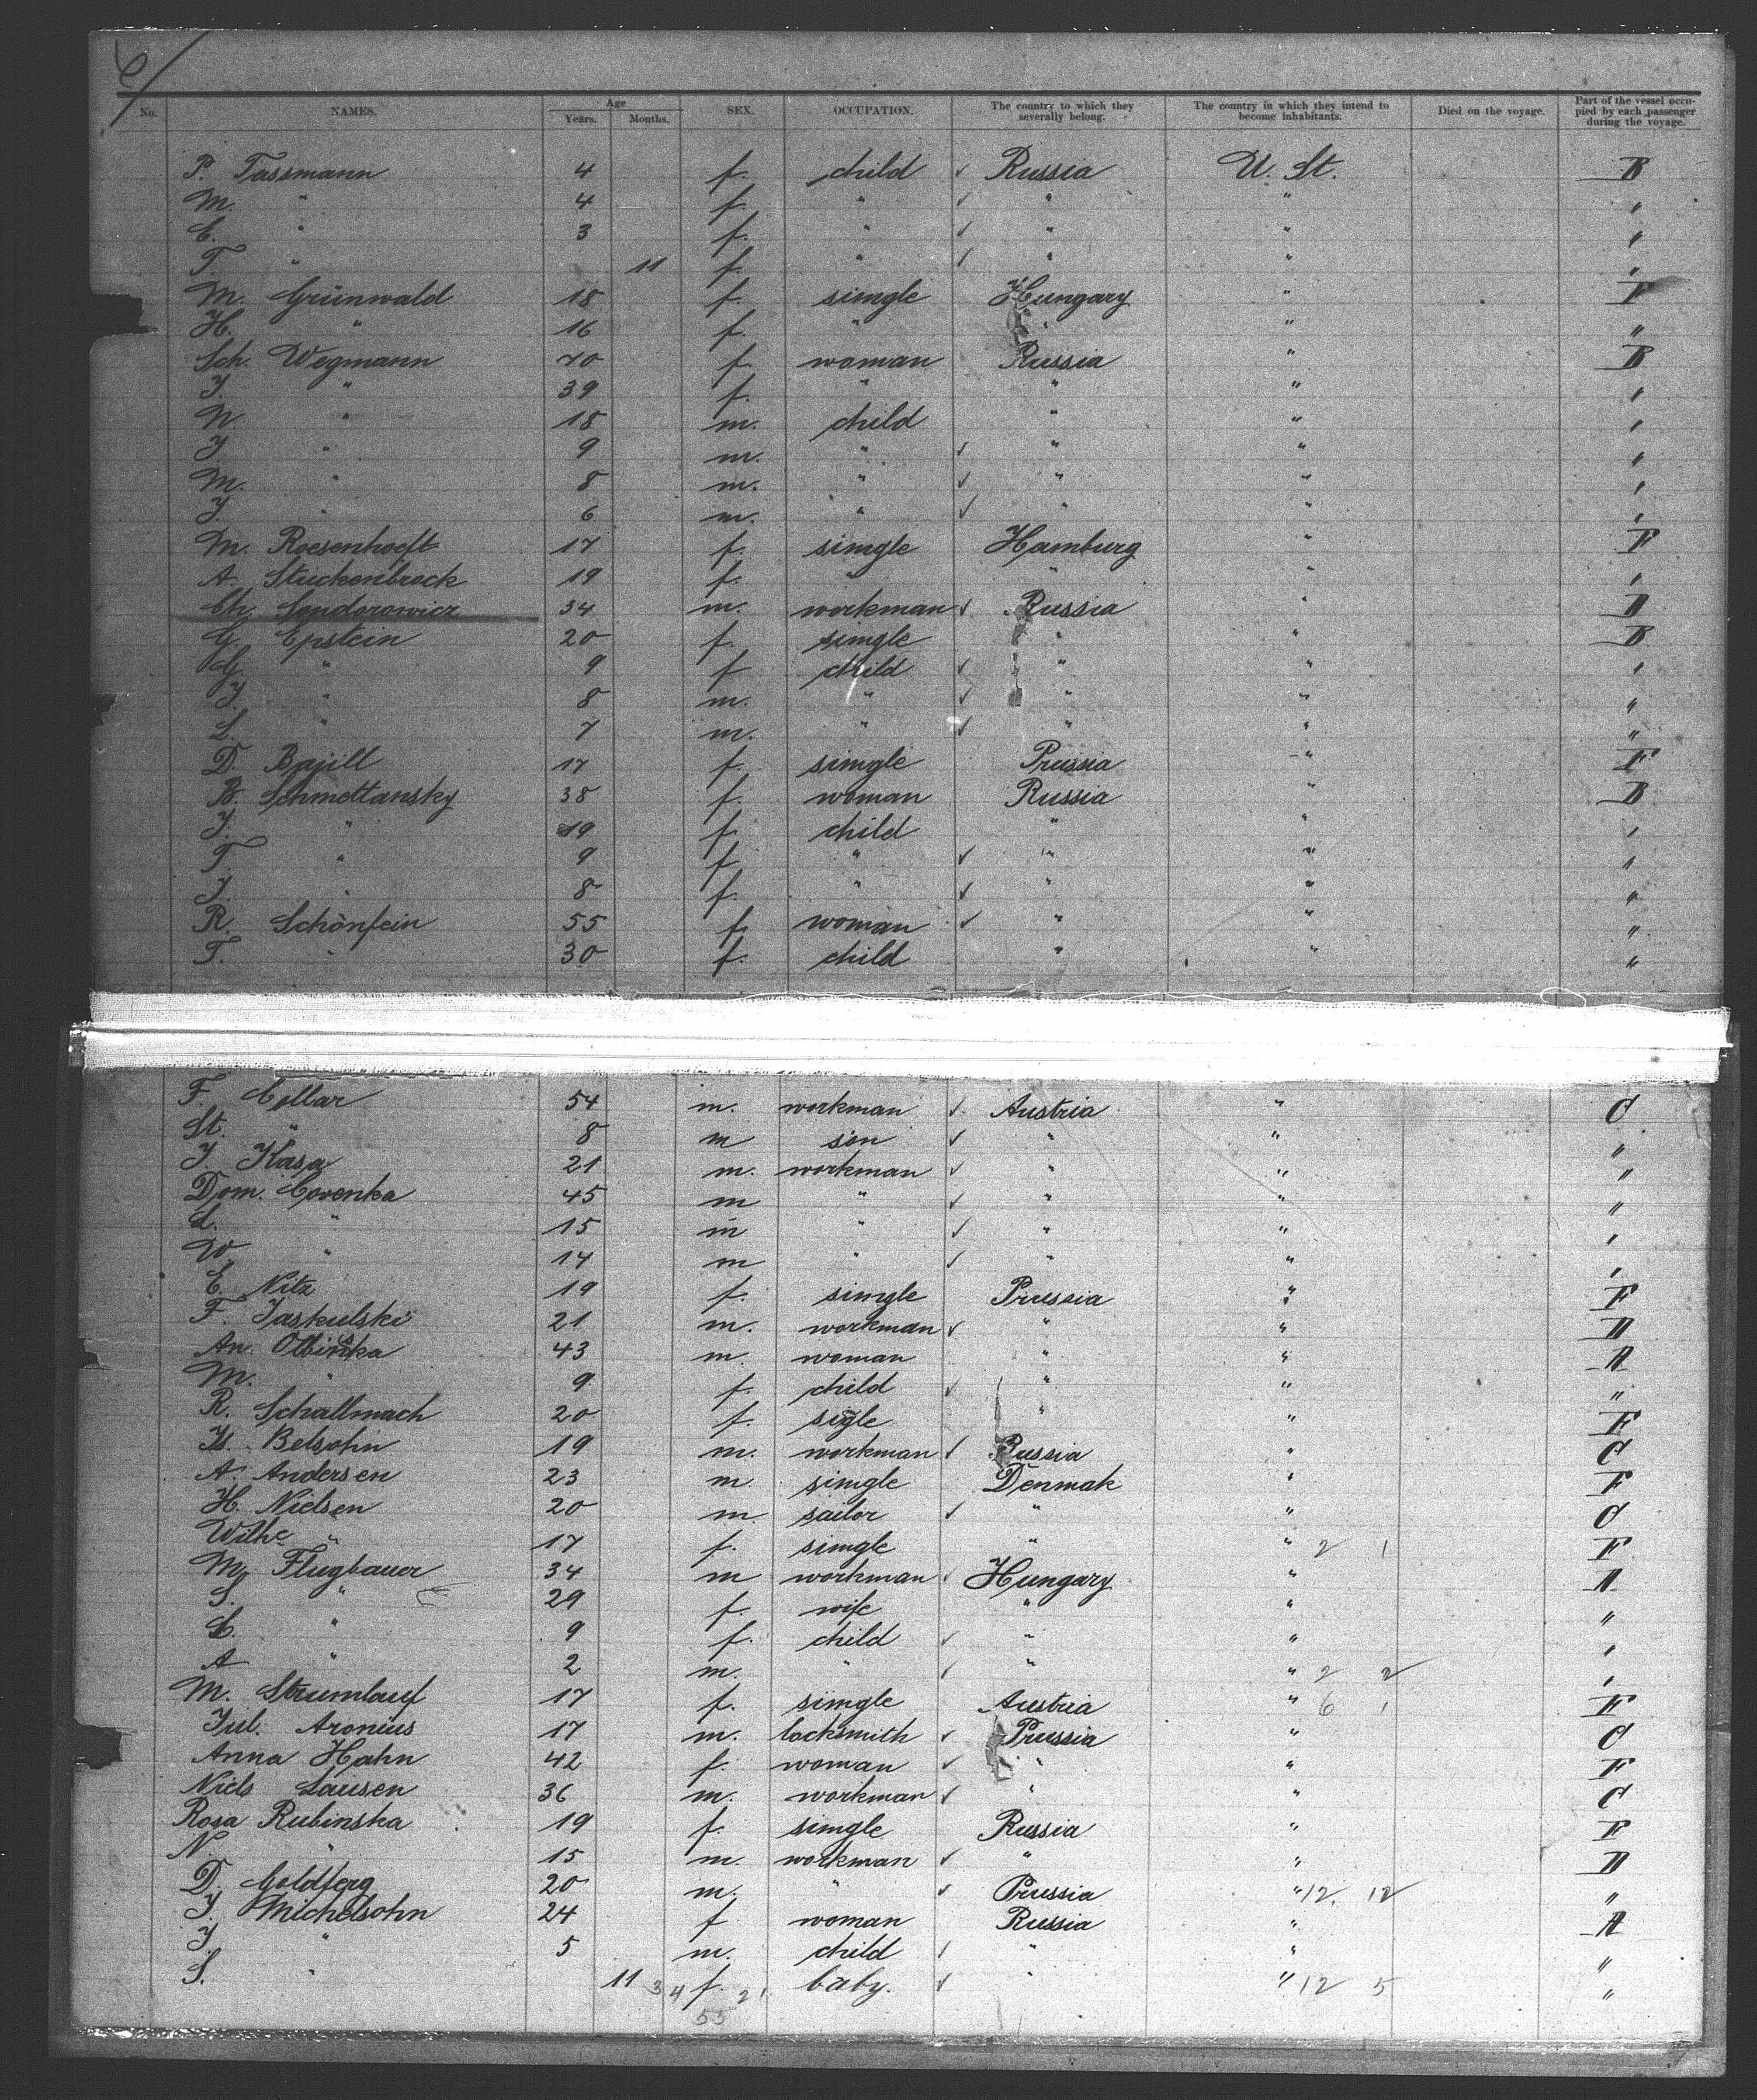 6/
No. NAMES. Age Years. Months. SEX. OCCUPATION. The country to which they severally belong. The country in which they intend to become inhabitants. Died on the voyage. Part of the vessel occupied by each passenger during the voyage.
P. Tassmann 4 f. child ✓ Russia U. St. B
M. " 4 f. " ✓ " " "
C. " 3 f. " ✓ " " "
T. " 11 f. " ✓ " " "
M. Grünwald 18 f. simgle Hungary " F
H. " 16 f. " " " "
Sch. Wegmann 70 f. woman Russia " B
J. " 39 f. " " " "
N. " 18 m. child " " "
J. " 9 m. " ✓ " " "
M. " 8 m. " ✓ " " "
J. " 6 m. " ✓ " " "
M. Roesenhoeft 17 f. simgle Hamburg " F
A. Stuckenbrock 19 f. " " " "
Ch. Sendorowicz 34 m. workman ✓ Russia " D
G. Epstein 20 f. simgle " " B
G. " 9 f. child ✓ " " "
J. " 8 m. " ✓ " " "
L. " 7 m. " ✓ " " "
D. Bajill 17 f. simgle Prussia " F
B. Schmettansky 38 f. woman Russia " B
J. " 19 f. child " " "
T. " 9 f. " ✓ " " "
J. " 8 f. " ✓ " " "
R. Schönfein 55 f. woman ✓ " " "
T. " 30 f. child " " "
F. Collar 54 m. workman ✓ Austria " C
St. " 8 m son ✓ " " "
J. Kasa 21 m. workman ✓ " " "
Dom. Covenka 45 m " ✓ " " "
L. " 15 m " ✓ " " "
W. " 14 m " ✓ " " "
E. Nitz 19 f. simgle Prussia " F
F. Jaskulski 21 m. workman ✓ " " D
An. Olbinska 43 m. woman " " A
M. " 9 f. child ✓ " " "
R. Schallmach 20 f. sigle " " F
Is. Belsohn 19 m. workman ✓ Russia " C
A. Andersen 23 m. simgle Denmak " F
H. Nielsen 20 m. sailor ✓ " " C
Wilhe " 17 f. simgle " " 2 1 F
M. Flugbauer 34 m workman ✓ Hungary " A
S. " 29 f. wife " " "
L. " 9 f. child ✓ " " "
A " 2 m. " ✓ " " 2 2 "
M. Strumlauf 17 f. simgle Austria " 6 1 F
Jul. Aronius 17 m. locksmith ✓ Prussia " C
Anna Hahn 42 f. woman ✓ " " F
Niels Lausen 36 m. workman ✓ " " C
Rosa Rubinska 19 f. simgle Russia " F
N. " 15 m. workman ✓ " " D
D. Goldferg 20 m. " ✓ Prussia " 12 12 "
J. Michelsohn 24 f woman Russia " A
J. " 5 m. child ✓ " " "
S. " 11 3 4 f. 21 baby. ✓ " " 12 5 "
55